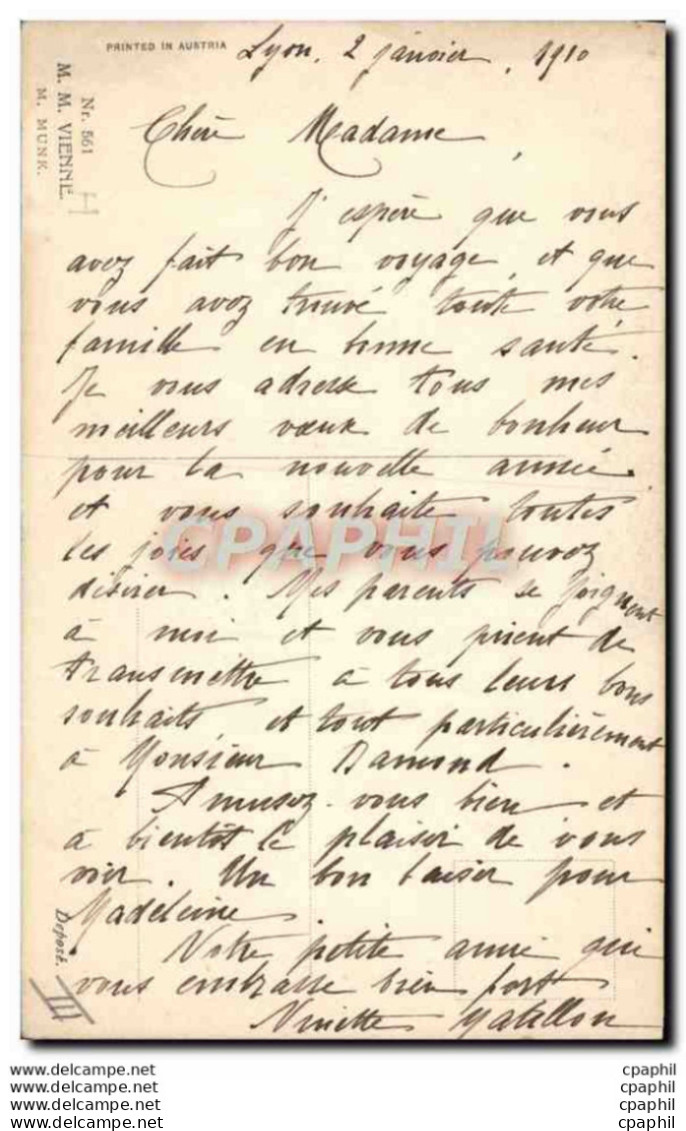 PRINTED IN AUSTRIA
Lyon, 2 janvier, 1910
Nr. 561
M. M. VIENNE.
M. MUNK.
Chère Madame,
J'espère que vous
avez fait bon voyage, et que
vous avez trouvé toute votre
famille en bonne santé.
Je vous adresse tous mes
meilleurs vœux de bonheur
pour la nouvelle année
et vous souhaite toutes
les joies que vous pouvez
désirer. Mes parents se joignent
à moi et vous prient de
transmettre à tous leurs bons
souhaits, et tout particulièrement
à Monsieur Damond.
Amusez-vous bien et
à bientôt le plaisir de vous
voir. Un bon baiser pour
Madeleine.
Votre petite amie qui
vous embrasse bien fort
Ninette
Deposé.
III
CPAPHIL
www.delcampe.net
www.delcampe.net
www.delcampe.net
www.delcampe.net
cpaphil
cpaphil
cpaphil
cpaphil